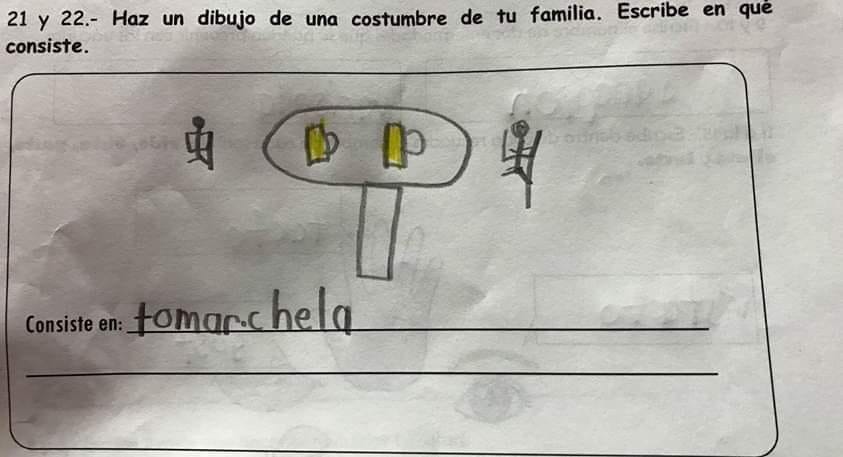 21 y 22.- Haz un dibujo de una costumbre de tu familia. Escribe en qué
consiste.
Consiste en: tomar.chela